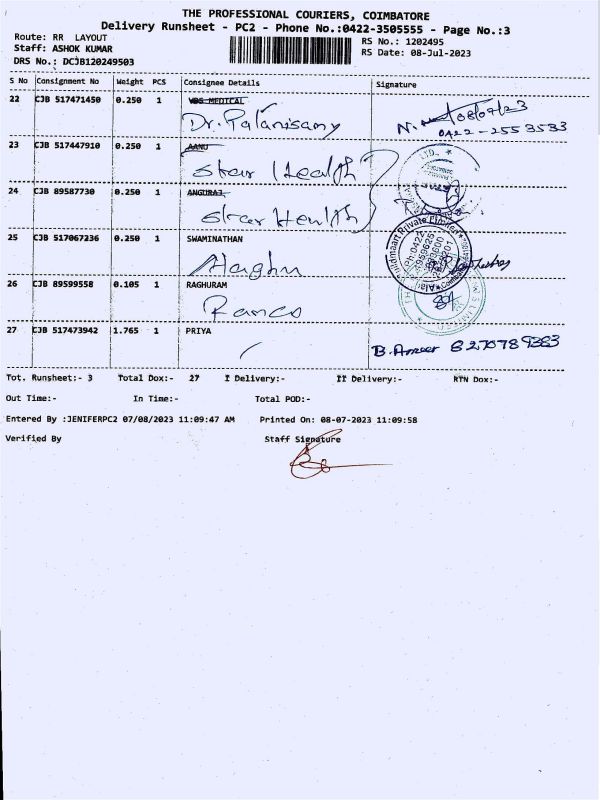 THE PROFESSIONAL COURIERS, COIMBATORE
Delivery Runsheet - PC2 - Phone No.:0422-3505555 - Page No.:3
Route: RR LAYOUT
RS No.: 1202495
Staff: ASHOK KUMAR
RS Date: 08-Jul-2023
DRS No.: DCJB120249503
S No Consignment No Weight PCS Consignee Details Signature
22 CJB 517471450 0.250 1 VBS MEDICAL
Dr. Palanisamy
08/07/23
0422-2553533
23 CJB 517447910 0.250 1 AANU
Star Health
24 CJB 89587730 0.250 1 ANGURAJ
Star Health
25 CJB 517067236 0.250 1 SWAMINATHAN
26 CJB 89599558 0.105 1 RAGHURAM
Ramco
27 CJB 517473942 1.765 1 PRIYA
B. Ameer 8270789383
Tot. Runsheet:- 3 Total Dox:- 27 I Delivery:- II Delivery:- RTN Dox:-
Out Time:- In Time:- Total POD:-
Entered By :JENIFERPC2 07/08/2023 11:09:47 AM Printed On: 08-07-2023 11:09:58
Verified By Staff Signature